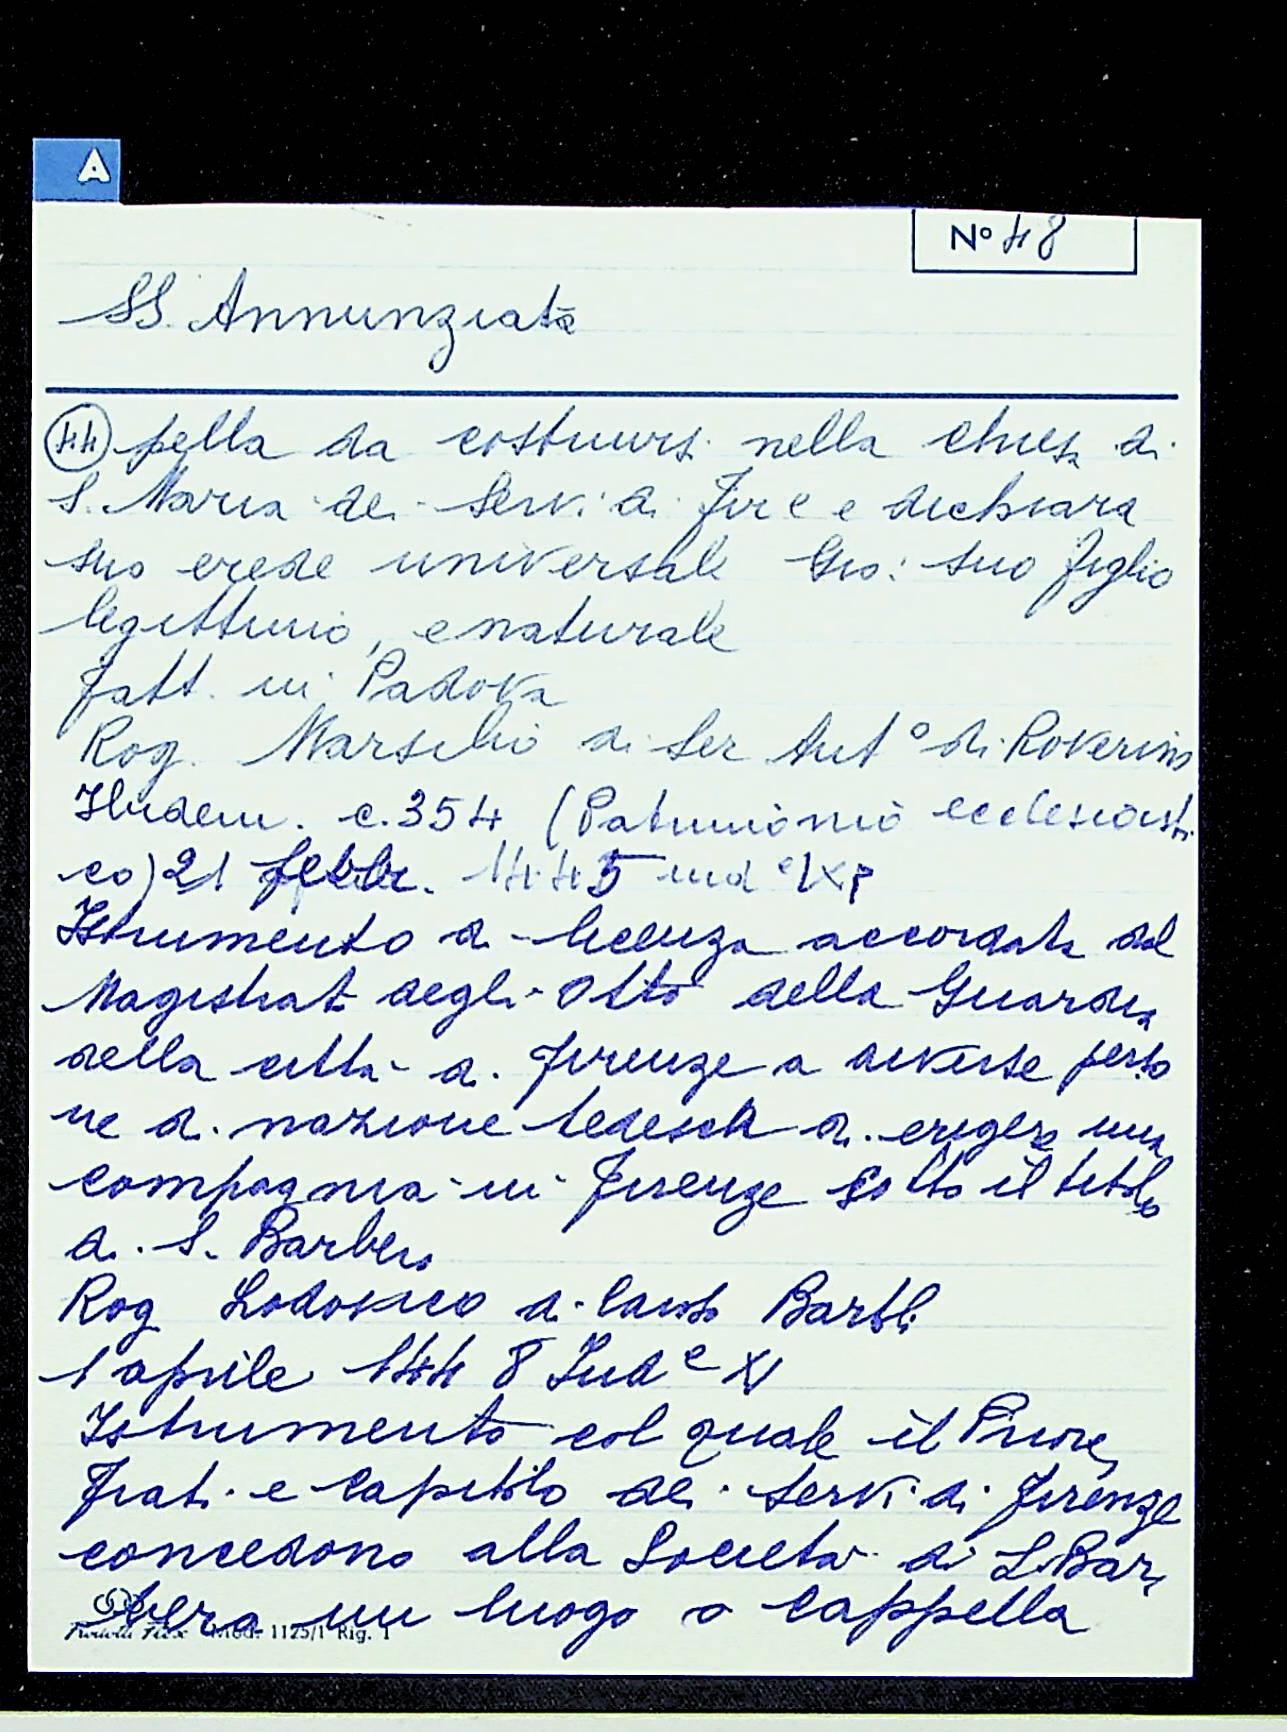 A
Nº 48
SS. Annunziata
44 pella da costruirsi nella chiesa di
S. Maria dei Servi di Fire e dichiara
suo erede universale Gio: suo figlio
legittimo, e naturale
fatt. in Padova
Rog. Marsilio di Ser Antº di Roverino
Ibidem. c. 354 (Patrimonio ecclesiasti
co) 21 febbr. 1445 ind e IX
Istrumento di licenza accordata dal
Magistrat degli Otto della Guardia
della città di Firenze a diverse perso
ne di nazione tedesch di erigere una
compagnia in Firenze sotto il titolo
di S. Barbera
Rog Lodovico di Bartoli
1 aprile 1448 Ind e XI
Istrumento col quale il Priore,
Frati e Capitolo dei Servi di Firenze
concedono alla Società di S. Bar,
bera un luogo o cappella
Mod. 1125/1 Rig. 1